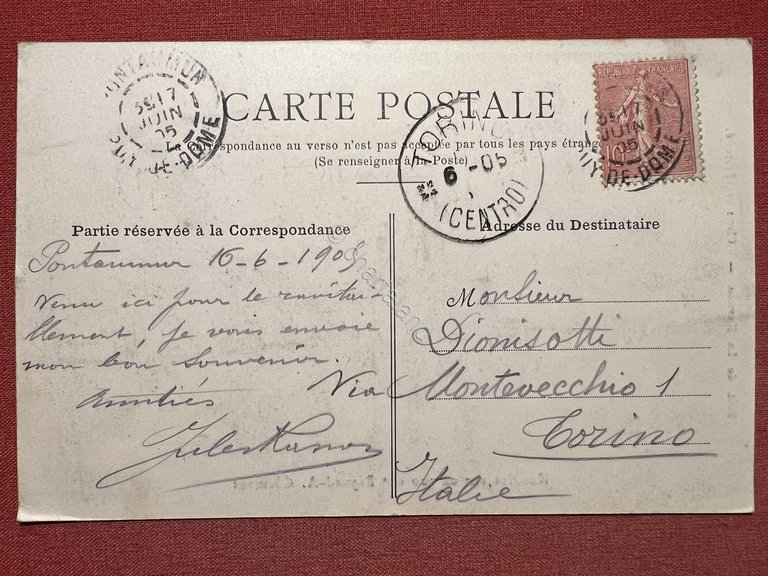 PONTAUMUR
17
JUIN
05
PUY-DE-DOME
CARTE POSTALE
REPUBLIQUE FRANÇAISE
10
17
JUIN
05
PUY-DE-DOME
TORINO
6 - 05
(CENTRO)
La Correspondance au verso n'est pas acceptée par tous les pays étrangers
(Se renseigner à la Poste)
Partie réservée à la Correspondance
Adresse du Destinataire
Pontaumur 16-6-1905
Venu ici pour le ravitai-
llement, je vous envoie
mon bon souvenir.
Amitiés
Jules
Monsieur
Dionisotti
Via Montevecchio 1
Torino
Italie